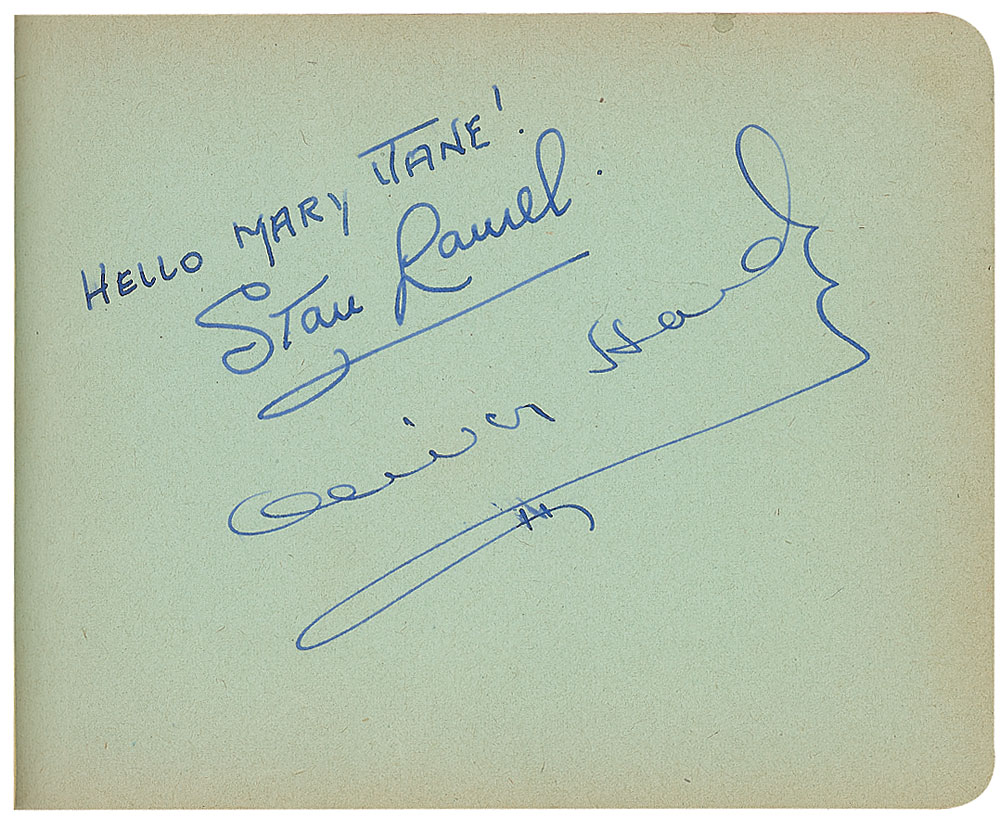 HELLO MARY JANE!
Stan Laurel.
Oliver Hardy